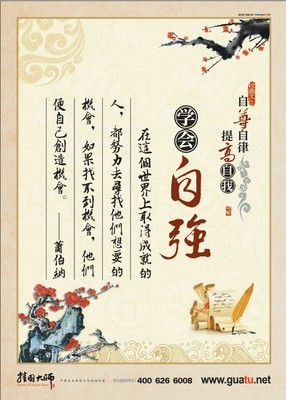 自尊自律
提高自我
学会
自強
在這個世界上取得成就的
人，都努力去尋找他們想要的
機會，如果找不到機會，他們
便自己創造機會。
——蕭伯納
挂图大师
400 626 6008
www.guatu.net